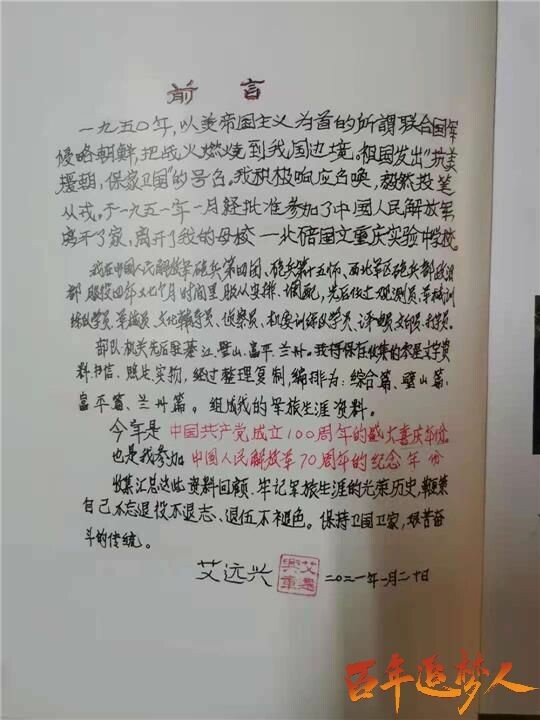 前 言
一九五〇年，以美帝国主义为首的所谓联合国军
侵略朝鲜，把战火燃烧到我国边境。祖国发出“抗美
援朝，保家卫国”的号召。我积极响应召唤，毅然投笔
从戎。于一九五一年一月经批准参加了中国人民解放军
离开了家、离开了我的母校—北碚国立重庆实验中学校。
我在中国人民解放军砲兵第四团、砲兵第十五师、西北军区砲兵部政治
部 服役四年又七个月时间里，服从安排、调配，先后任过观测员、军械训
练队学员、军械员、文化教导员、侦察员、机要训练队学员、译电员
部队机关先后驻綦江、璧山、富平、兰州。我将保存收集的零星文字资
料书信、照片、实物，经过整理复制，编排为：综合篇、璧山篇、
富平篇、兰州篇。组成我的军旅生涯资料。
今年是 中国共产党成立100周年的盛大喜庆年份
也是我参加 中国人民解放军70周年的纪念年份
收集汇总达此资料回顾、牢记军旅生涯的光荣历史，鞭策
自己不忘退役不退志、退伍不褪色。保持卫国卫家，艰苦奋
斗的传统。
艾远兴 二〇二一年一月二十日
百年追梦人